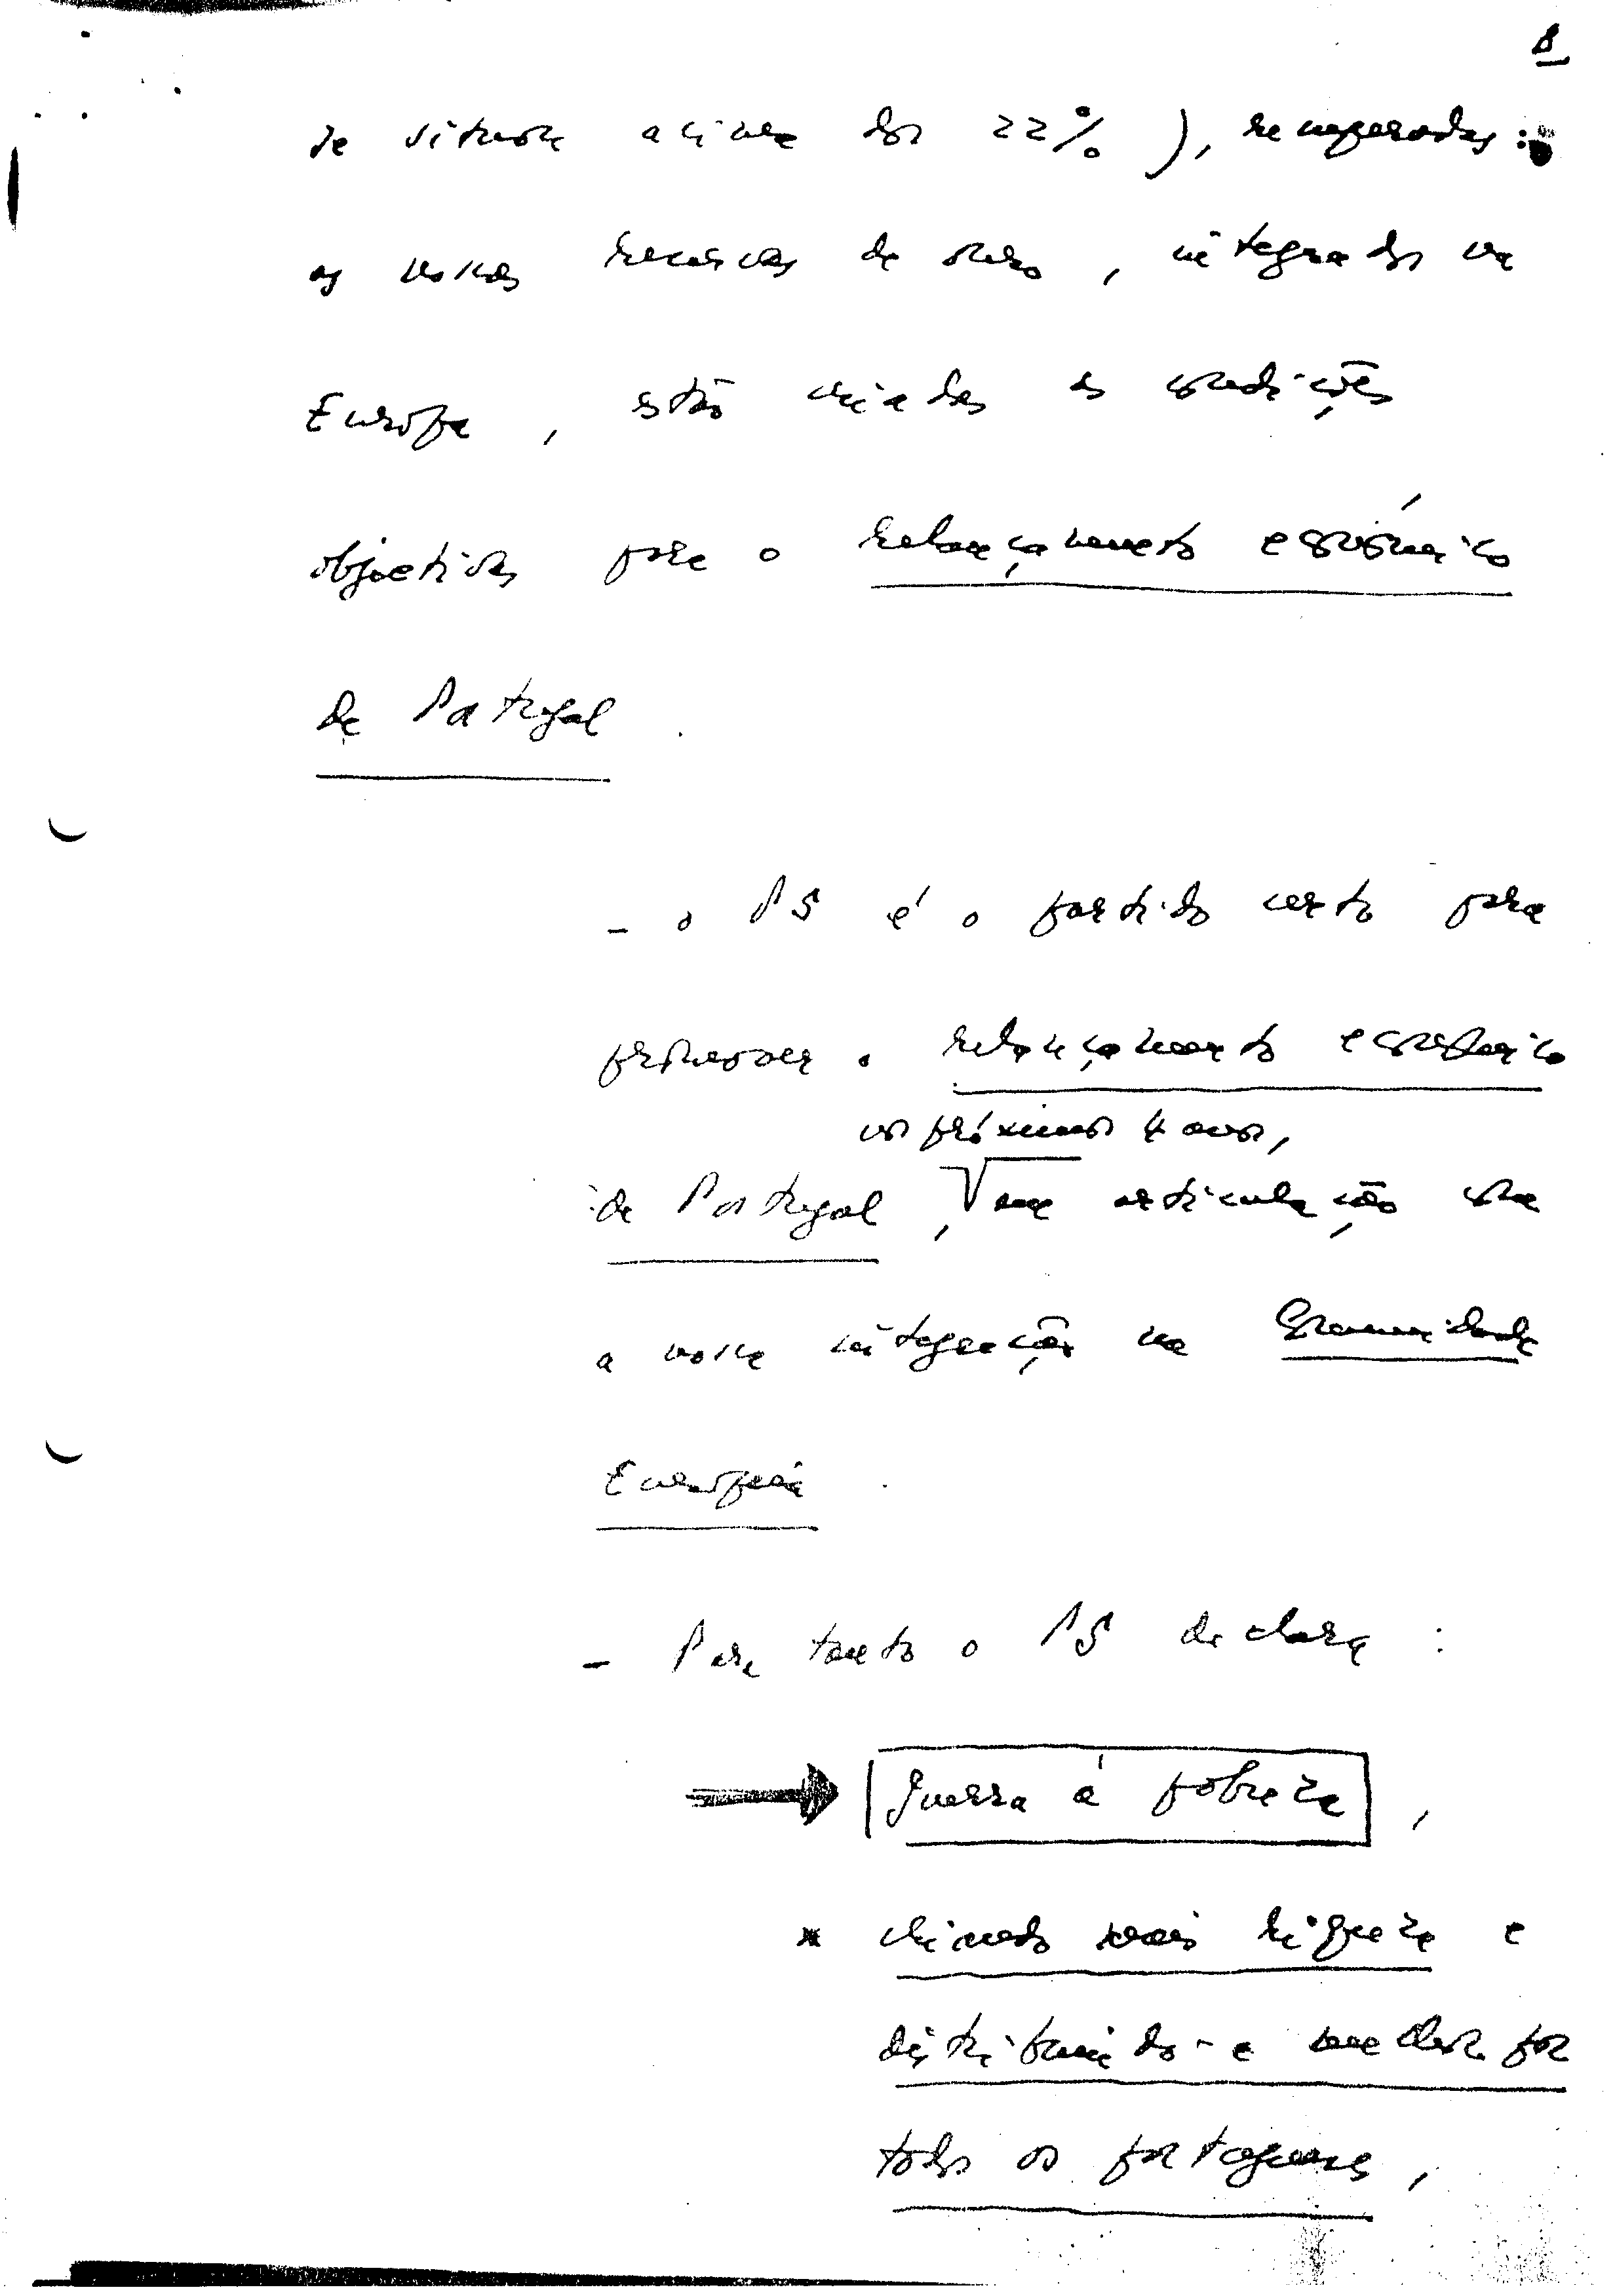 8
se situava acima dos 22%), recuperadas
as nossas reservas de ouro, integrados na
Europa, estão criadas as condições
objectivas para o relançamento económico
de Portugal.
- o PS é o partido certo para
promover o relançamento económico
nos próximos 4 anos,
de Portugal, em articulação com
a nossa integração na Comunidade
Europeia.
- Para tanto o PS declara:
guerra à pobreza,
* criando mais riqueza e
distribuindo-a melhor por
todos os portugueses,